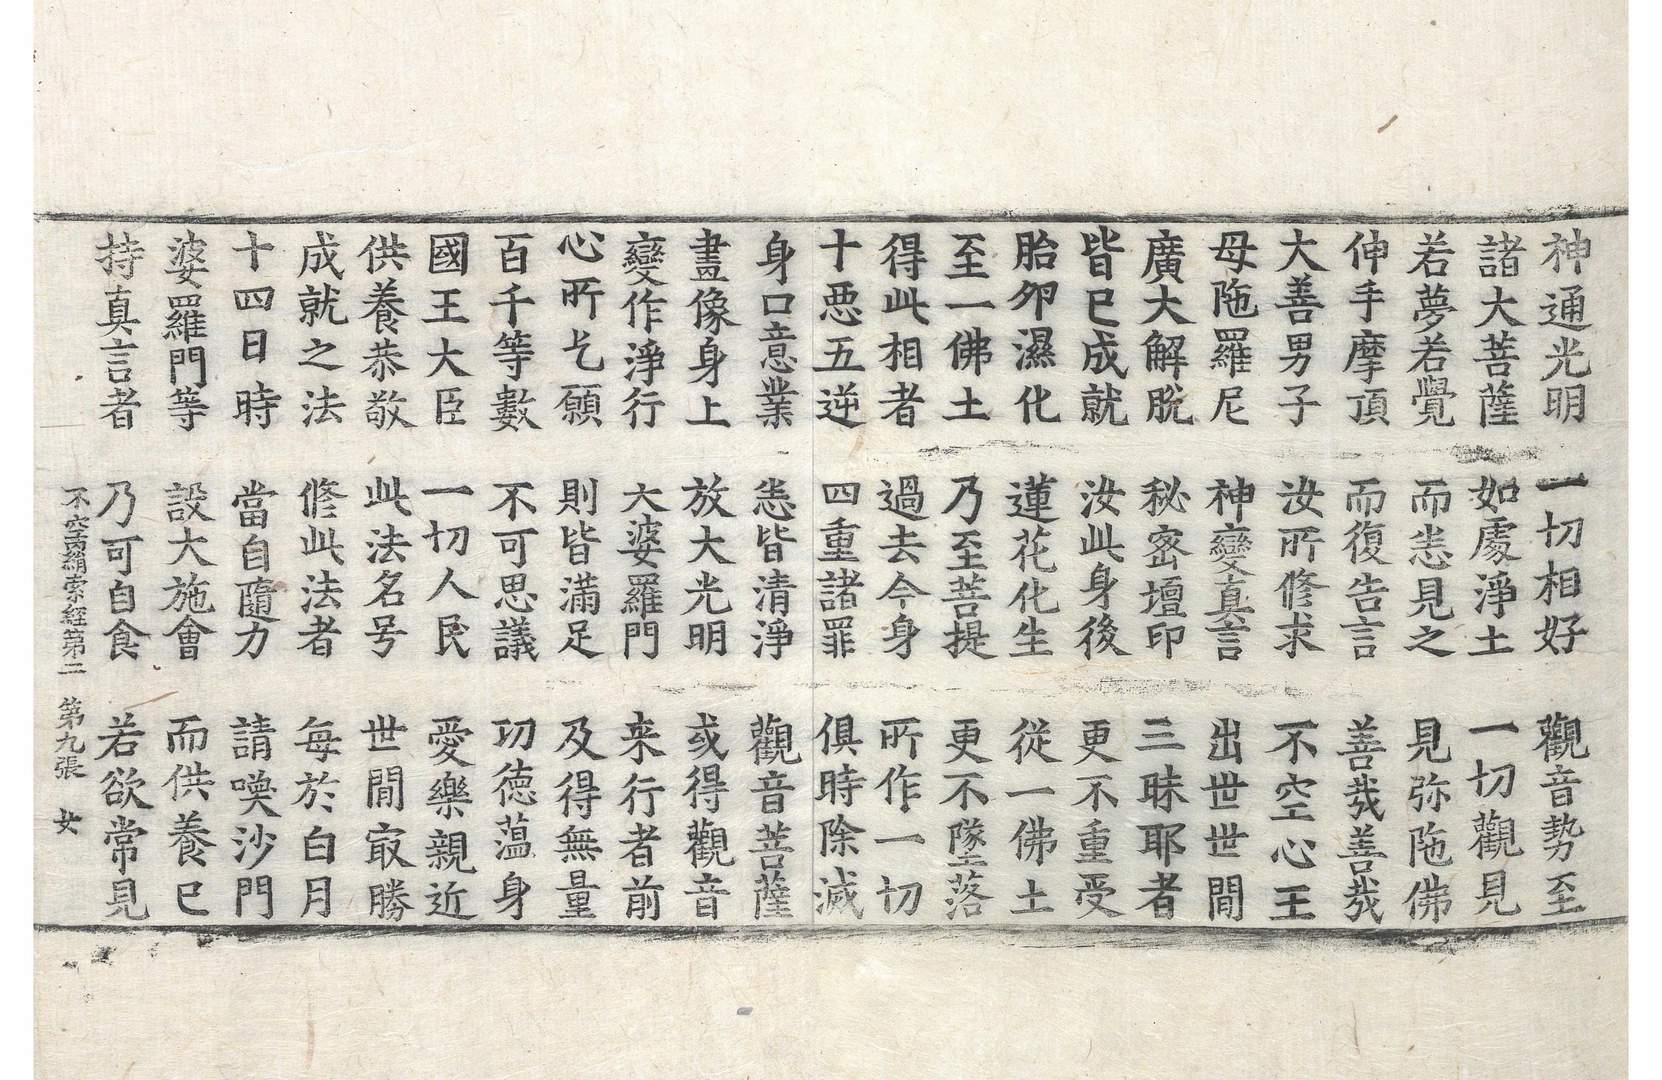 神通光明 一切相好 觀音勢至
諸大菩薩 如處淨土 一切觀見
若夢若覺 而悉見之 見弥陁佛
伸手摩頂 而復告言 善哉善哉
大善男子 汝所修求 不空心王
母陁羅尼 神變真言 出世世間
廣大解脫 秘密壇印 三昧耶者
皆已成就 汝此身後 更不重受
胎卵濕化 蓮花化生 從一佛土
至一佛土 乃至菩提 更不墜落
得此相者 過去今身 所作一切
十惡五逆 四重諸罪 俱時除滅
身口意業 悉皆清淨 觀音菩薩
畫像身上 放大光明 或得觀音
變作淨行 大婆羅門 来行者前
心所乞願 則皆滿足 及得無量
百千等數 不可思議 功德蕰身
國王大臣 一切人民 愛樂親近
供養恭敬 此法名号 世間㝡勝
成就之法 修此法者 每於白月
十四日時 當自隨力 請喚沙門
婆羅門等 設大施會 而供養已
持真言者 乃可自食 若欲常見
不空羂索經第二 第九張 女